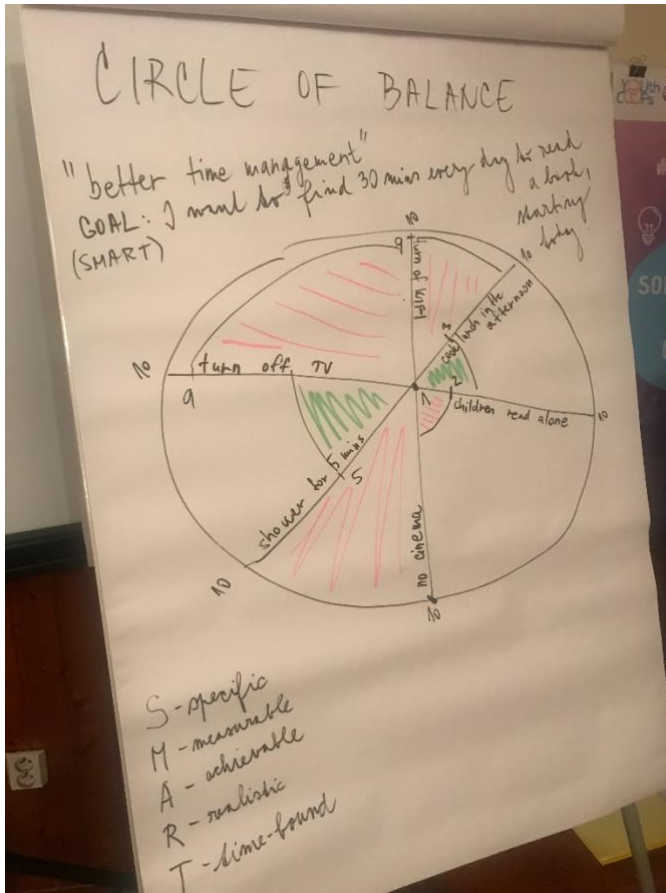 CIRCLE OF BALANCE
"better time management"
GOAL: I want to find 30 mins every day to read
a book,
starting
today.
(SMART)
10
9
turn of WIFI
10
cook lunch in the
afternoon
3
10
turn off TV
9
1
2
children read alone
10
shower for 5 mins
5
10
no cinema
10
S - specific
M - measurable
A - achievable
R - realistic
T - time-bound
Youth
SO